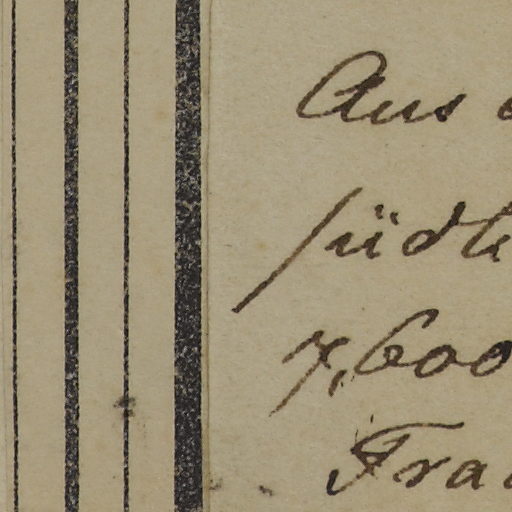 Aus
südl
7,600
Fra